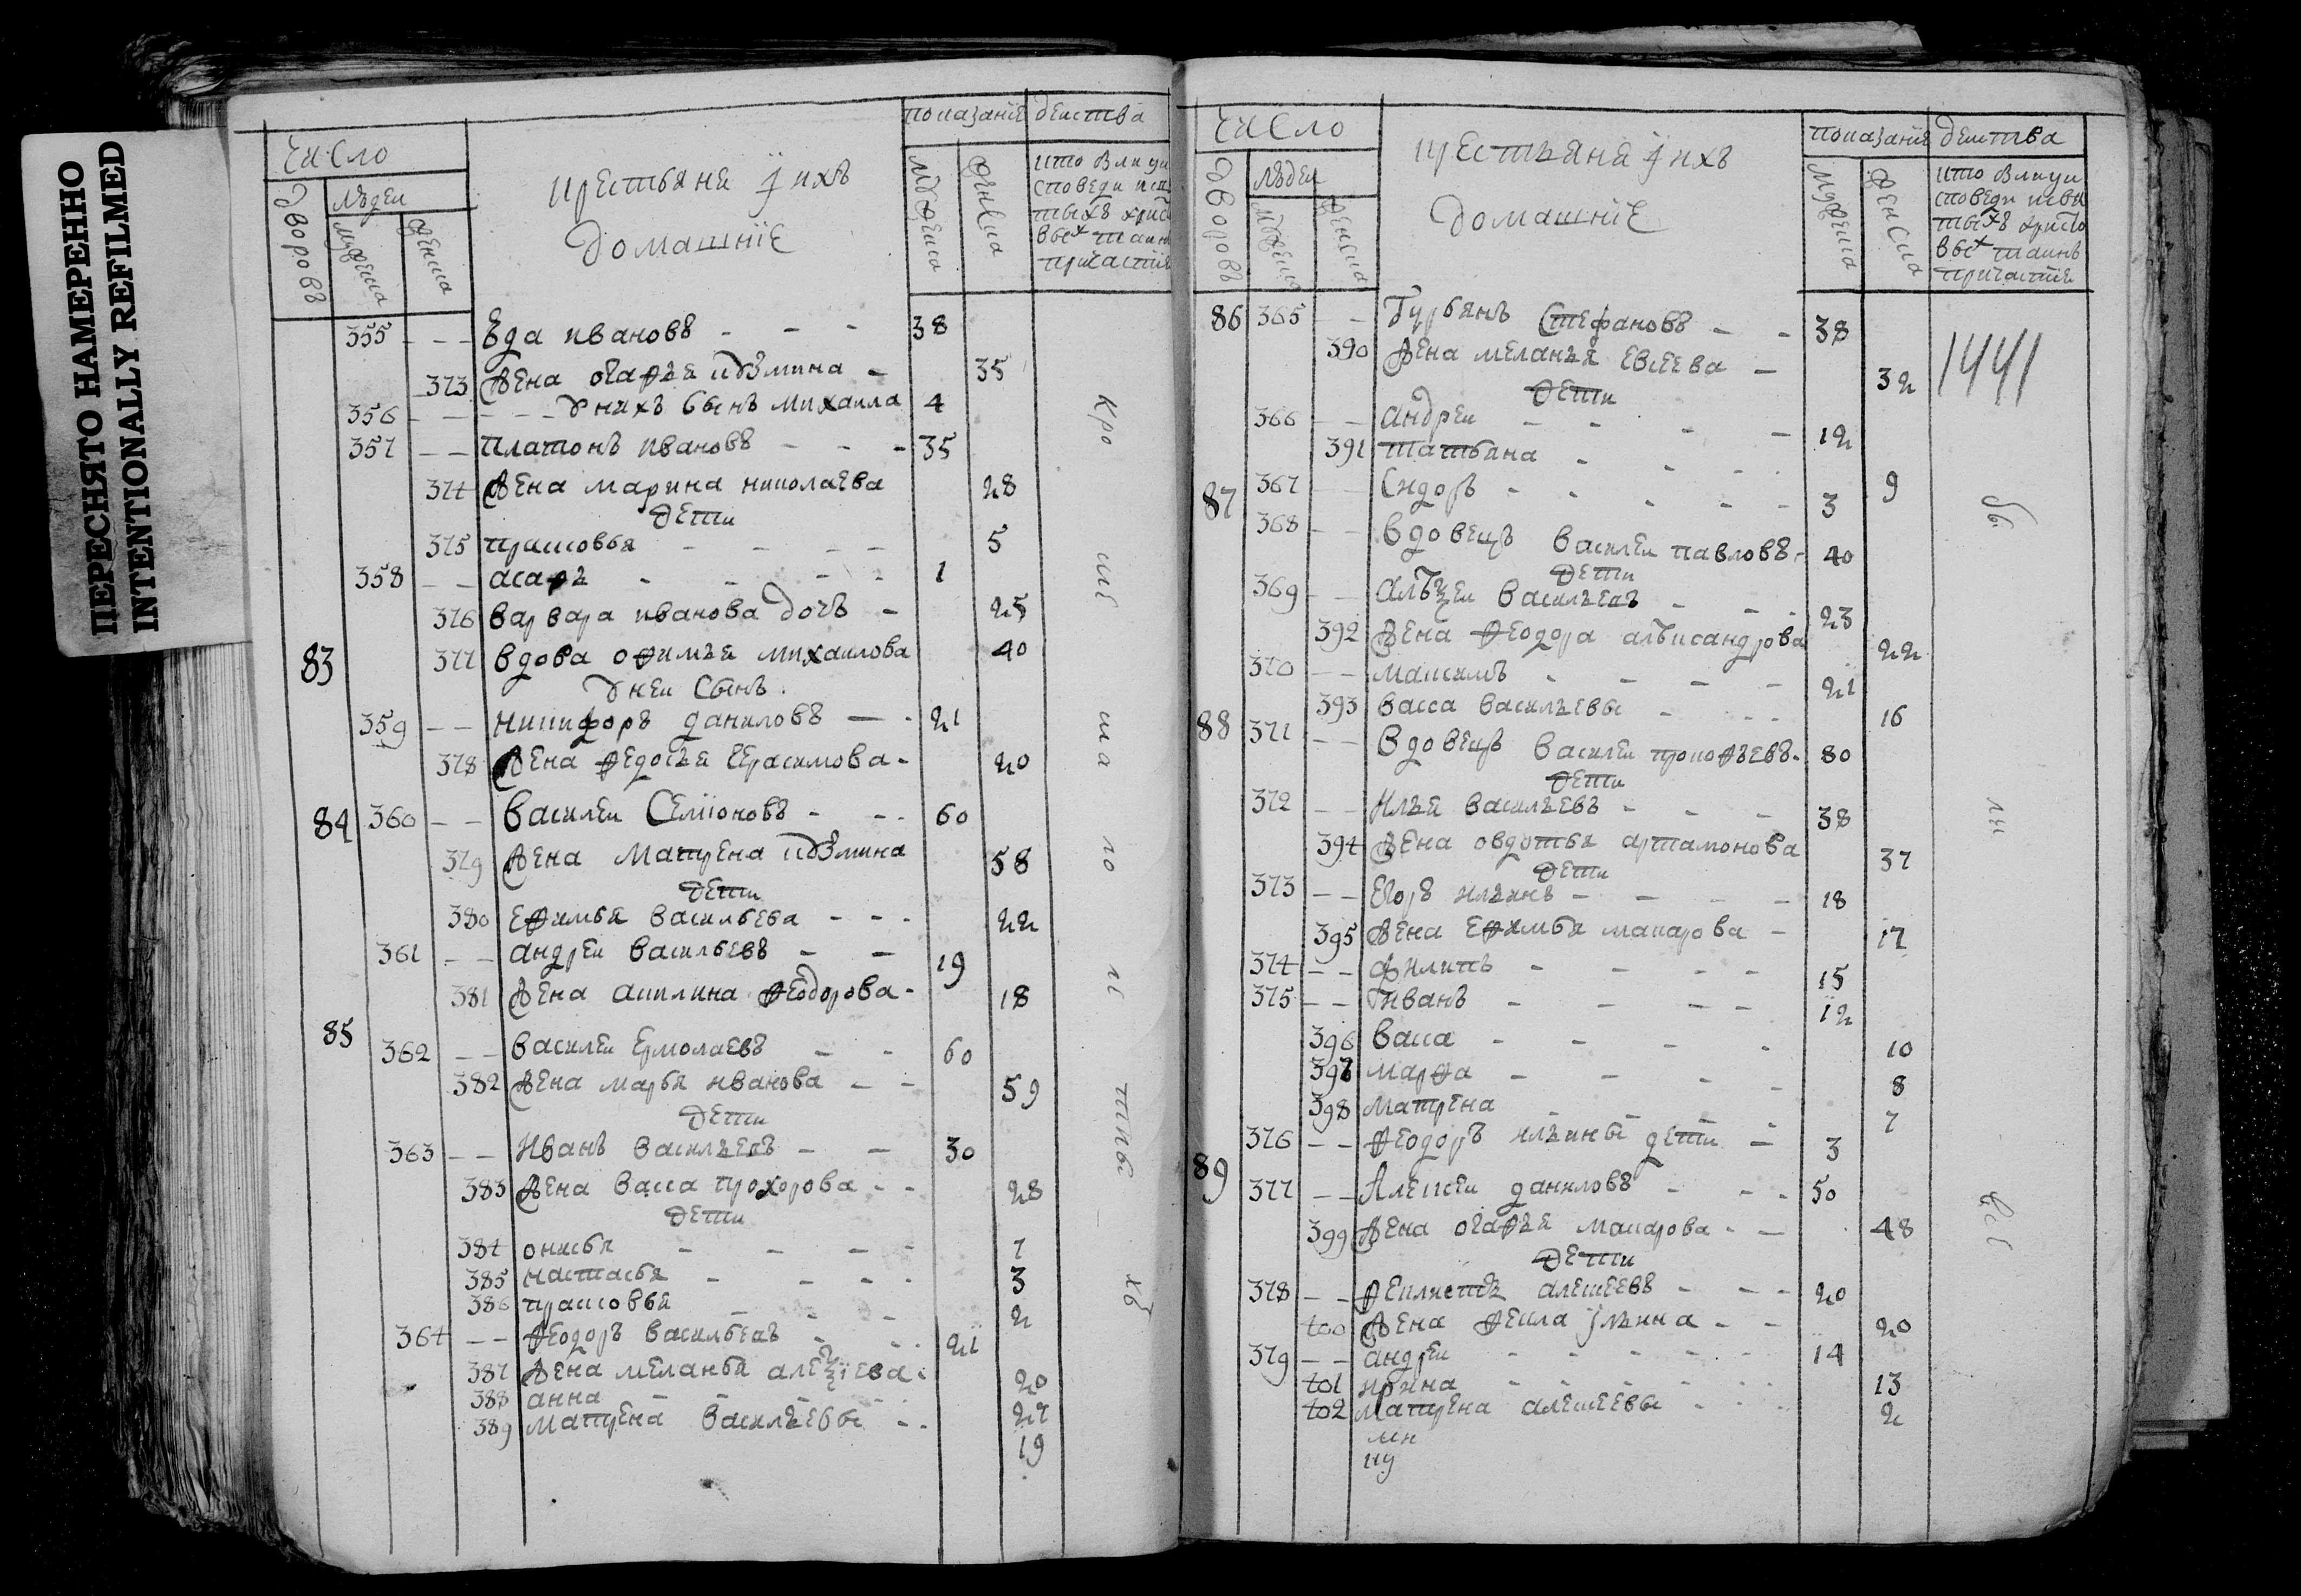 ПЕРЕСНЯТО НАМЕРЕННО
INTENTIONALLY REFILMED
число
дворовъ
людеи
мужеска
женска
крестьяне и ихъ
домашние
показание
деиства
мужеска
женска
кто были у и
споведи и св
тыхъ христ
выхъ таин
причастия
355 Еда ивановъ 38
373 Жена огафья кузмина 35
356 у нихъ сынъ михаила 4
357 платонъ ивановъ 35
374 Жена марина николаева 28
дети
375 прасковья 5
358 асафъ 1
376 варвара иванова дочь 25
83 377 вдова офимья михаилова 40
у неи сынъ
359 никифоръ даниловъ 21
378 Жена федосья герасимова 20
84 360 василеи семионовъ 60
379 Жена матрена кузмина 58
дети
380 ефимья васильева 22
361 андреи васильевъ 19
381 Жена акилина феодорова 18
85
362 василеи ермолаевъ 60
382 Жена марья иванова 59
дети
363 иванъ васильевъ 30
383 Жена васса прохорова 28
дети
384 онисья 7
385 настасья 3
386 прасковья 2
364 феодоръ васильевъ 21
387 Жена меланья алеѯиева 20
388 анна
389 матрена васильевы
19
кро
ше
ка
ло
ле
тны
хъ
число
дворовъ
людеи
мужеска
женска
крестьяне и ихъ
домашние
показание
деиства
мужеска
женска
кто были у и
споведи и свя
тыхъ христо
выхъ таинъ
причастия
86 365 Гурьянъ стефановъ 38
1441
390 Жена меланья евсеева 32
дети
366 андреи 12
391 татьяна 9
367 сидоръ 3
87 368 вдовецъ василеи павловъ 40
дети
369 алеѯеи васильевъ 23
392 Жена феодора алеѯандрова 22
370 максимъ 21
393 васса васильевы 16
88 371 вдовецъ василеи прокофьевъ 80
дети
372 илья васильевъ 38
394 Жена овдотья артамонова 37
дети
373 егоръ ильинъ 18
395 Жена ефимья макарова 17
374 филипъ 15
375 иванъ 12
396 васса 10
397 марфа 8
398 матрена 7
376 феодоръ ильины дети 3
89 377 алексеи даниловъ 50
399 Жена огафья макарова 48
дети
378 феклистъ алексеевъ 20
400 Жена фекла 20
379 андреи 14
401 ирина 13
402 матрена алексеевы 2
мн